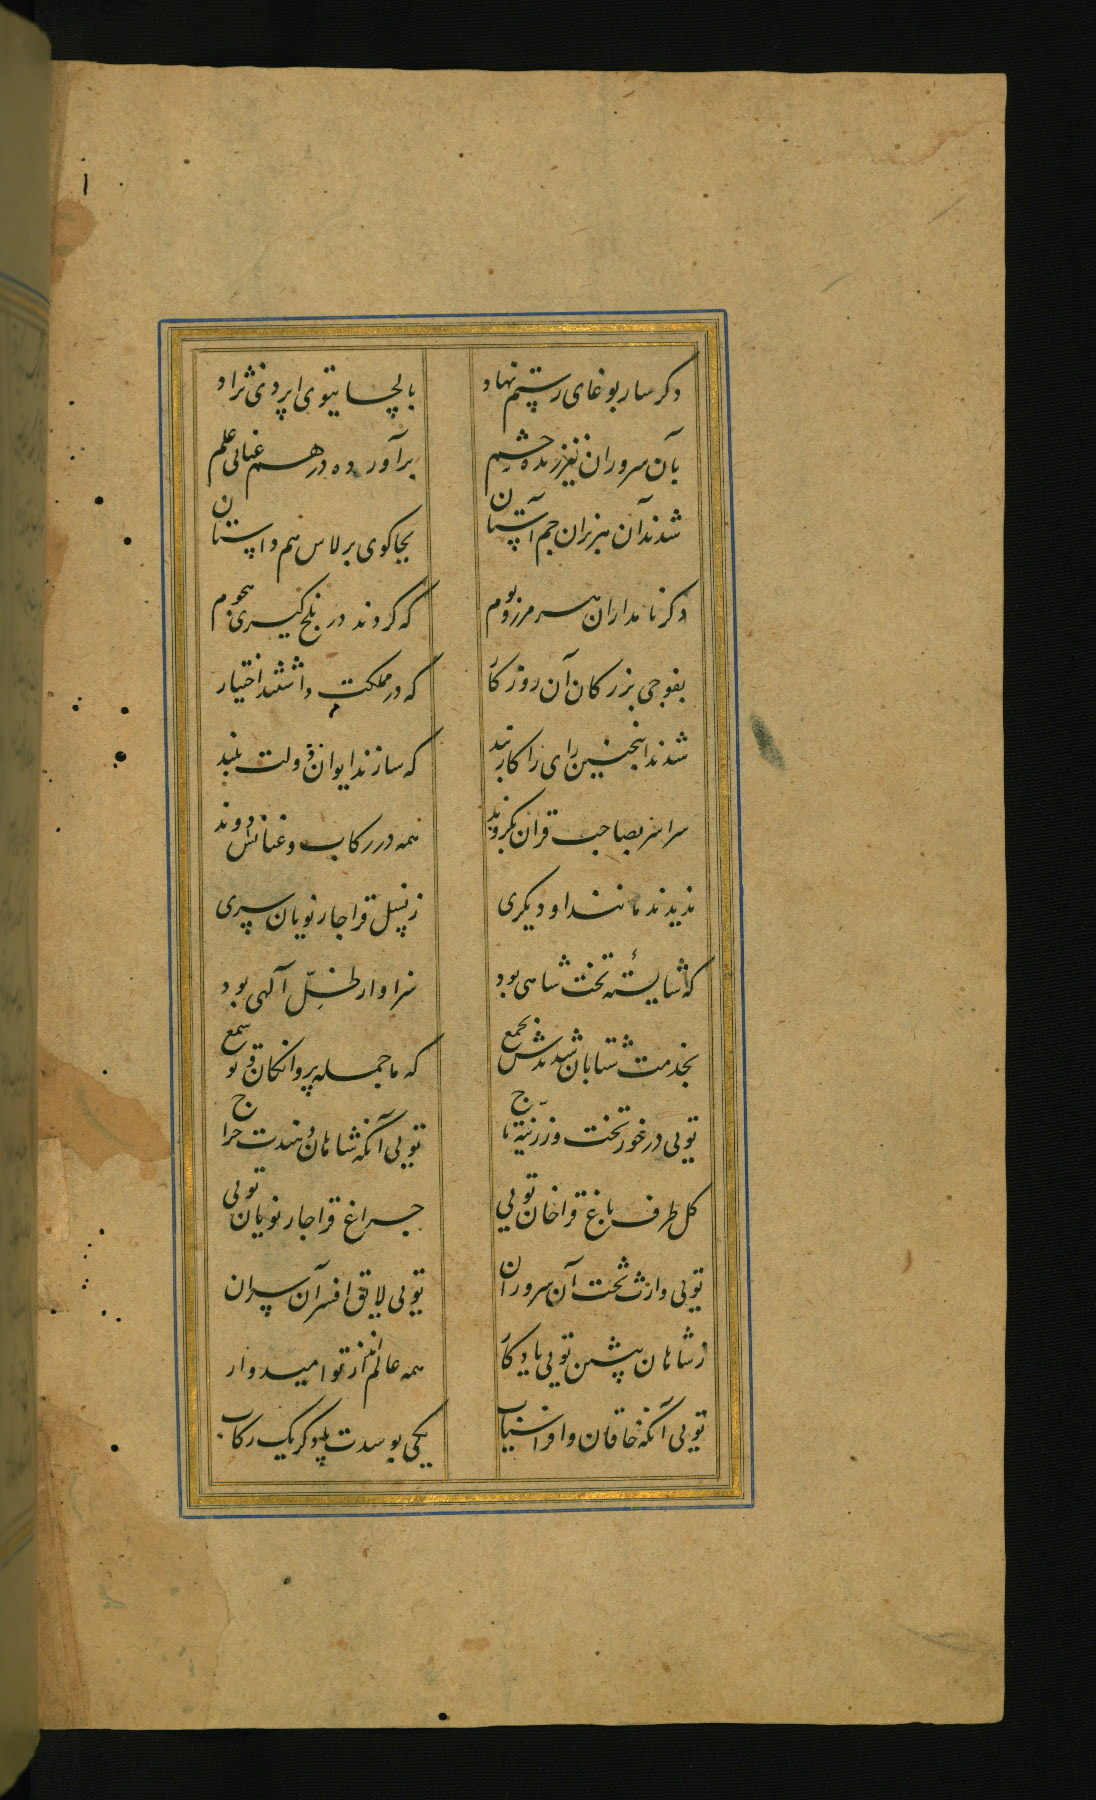 دکر ساربوغای رستم نهاد بالچایتوی ایردنی نژاد
بآن سروران نیز زنده حشم برآورده در هم‌عنانی علم
شدند آن هزبران جم آستان بجاکوی برلاس هم داستان
دکر نامداران هر مرز و بوم که کردند در بلخ کیری هجوم
بفوجی بزرکان آن روزکار که در مملکت داشتند اختیار
شدند اینچنین رای را کاربند که سازند ایوان دولت بلند
سراسر بصاحب قران بکروند همه در رکاب و عنانش دوند
ندیدند مانند او دیکری ز نسل قراجار نویان سری
که شایستهٔ تخت شاهی بود سزاوار ظلّ آلهی بود
بخدمت شتابان شدندش بجمع که ما جمله پروانکان و تو شمع
تویی درخور تخت و زرینه تاج تویی آنکه شاهان دهندت خراج
کل طرف باغ قراخان تویی چراغ قراجار نویان تویی
تویی وارث تخت آن سروران تویی لایق افسر آن سران
ز شاهان پیشین تویی یادکار همه عالم از تو امیدوار
تویی آنکه خاقان و افراسیاب یکی بوسدت پا دکر یک رکاب